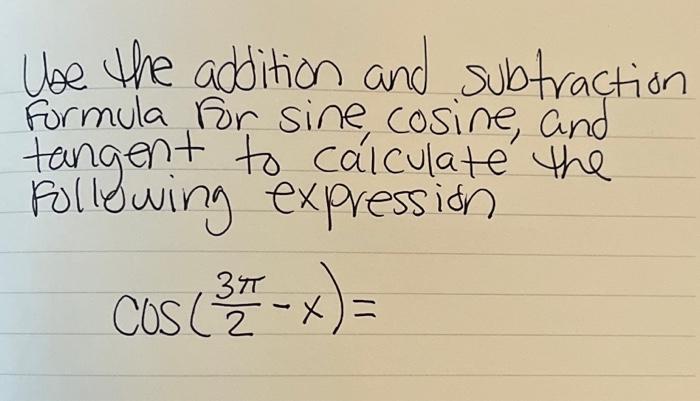 Use the addition and subtraction
Formula For sine, cosine, and
tangent to calculate the
Following expression
cos(3π/2 - x) =